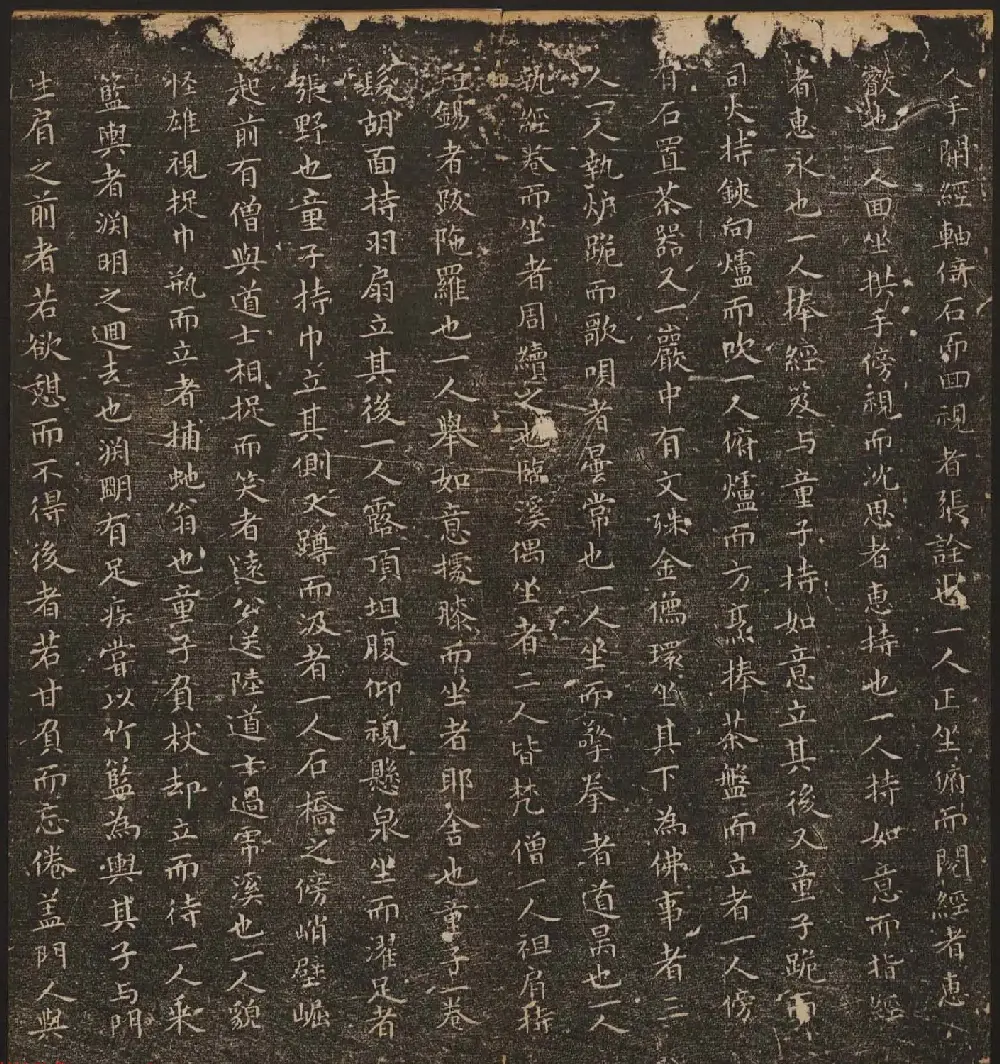 人手開經軸倚石而回視者張詮也一人正坐俯而閱經者惠
叡也一人面坐拱手傍視而沈思者惠持也一人持如意而指經
者惠永也一人捧經笈与童子持如意立其後又童子跪而
司火持鋏向爐而吹一人俯爐而方聚捧茶盤而立者一人傍
有石置茶器又一巖中有文殊金像環坐其下為佛事者三
人一人執炉跪而歌唄者曇常也一人坐而擎拳者道昺也一人
執經卷而坐者周續之也臨溪偶坐者二人皆梵僧一人袒肩持
錫者跋陁羅也一人舉如意據膝而坐者耶舍也童子一卷
髮胡面持羽扇立其後一人露頂坦腹仰視懸泉坐而濯足者
張野也童子持巾立其側又蹲而汲者一人石橋之傍峭壁崛
起前有僧與道士相捉而笑者遠公送陸道士過虎溪也一人貌
怪雄視捉巾瓶而立者捕虵翁也童子負杖却立而待一人乘
籃輿者渊明之迴去也渊明有足疾嘗以竹籃為輿其子与門
生肩之前者若欲憩而不得後者若甘負而忘倦盖門人與